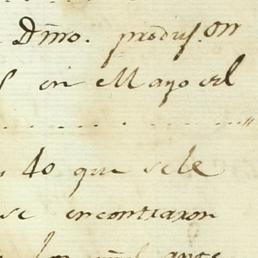 Dmo. produs.on
en Mayo del
40 que sele
se encontraron